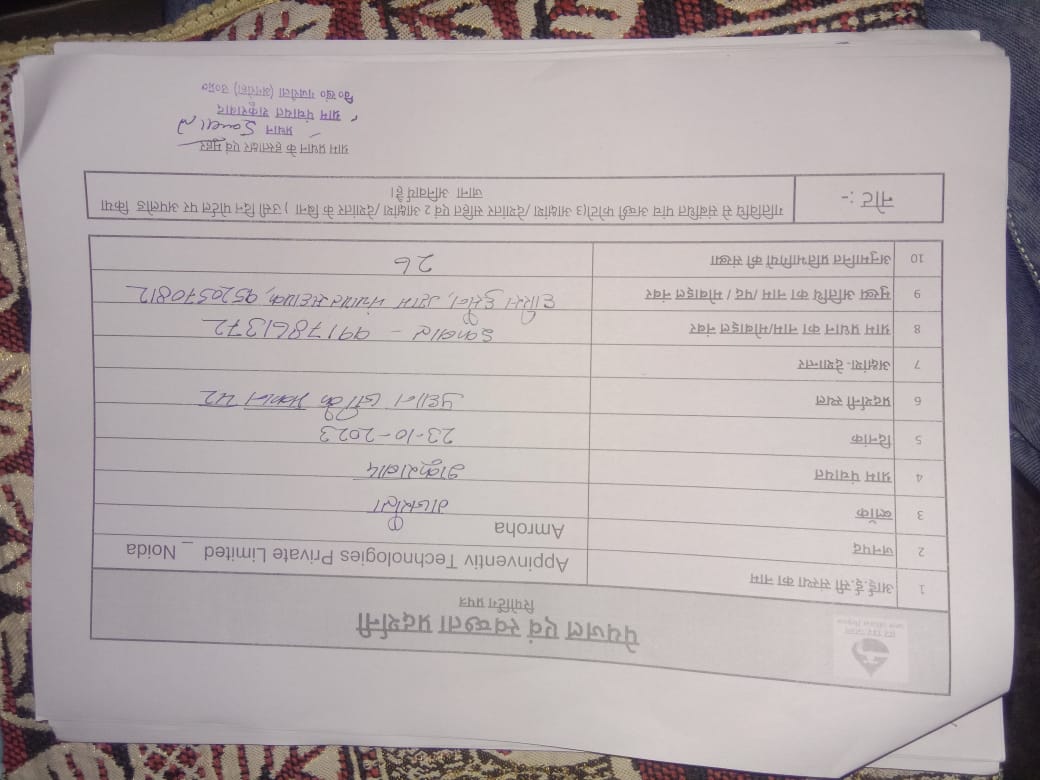 हर घर जल
जल जीवन मिशन
पेयजल एवं स्वच्छता प्रदर्शनी
रिपोर्टिंग प्रपत्र
1 आई.ई.सी संस्था का नाम Appinventiv Technologies Private Limited _ Noida
2 जनपद Amroha
3 ब्लॉक गजरौला
4 ग्राम पंचायत शकुराबाद
5 दिनांक 23-10-2023
6 प्रदर्शनी स्थल प्रधान जी के मकान पर
7 अक्षांश- देशान्तर
8 ग्राम प्रधान का नाम/मोबाइल नंबर - 9917861372
9 मुख्य अतिथि का नाम /पद / मोबाइल नंबर हुसैन, ग्राम पंचायत सहायक, 9520570812
10 अनुमानित प्रतिभागियों की संख्या 26
नोट :- गतिविधि से संबंधित पांच अच्छी फोटो(3) आक्षांश /देशांतर सहित एवं 2 आक्षांश /देशांतर के बिना ) उसी दिन पोर्टल पर अपलोड किया
जाना अनिवार्य है।
ग्राम प्रधान के हस्ताक्षर एवं मुहर
प्रधान
ग्राम पंचायत शकुराबाद
वि०खं० गजरौला (अमरोहा) उ०प्र०